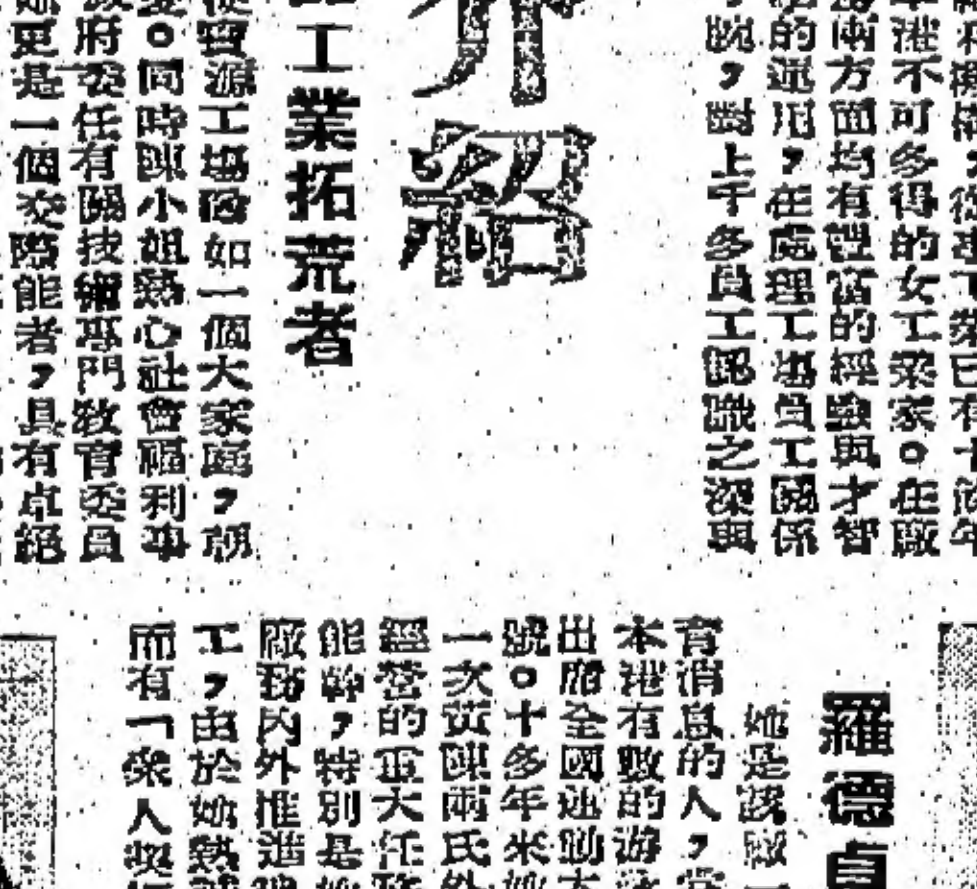 從事工業已有十餘年
本港不可多得的女工業家。在廠
兩方面均有豐富的經驗與才智
的運用，在處理工場員工關係
腕，對上千多員工認識之深與
介紹
工業拓荒者
寶源工場內如一個大家庭，朝
。同時陳小姐熱心社會福利事
政府委任有關技術專門教育委員
她更是一個交際能者，具有卓絕
羅德貞
她是該廠一
育消息的人，
本港有數的游泳
出席全國運動大
號。十多年來她
一次黃陳兩氏外
經營的重大任務
能幹，特別是她
廠務內外推進
工，由於她熱誠
而有「眾人